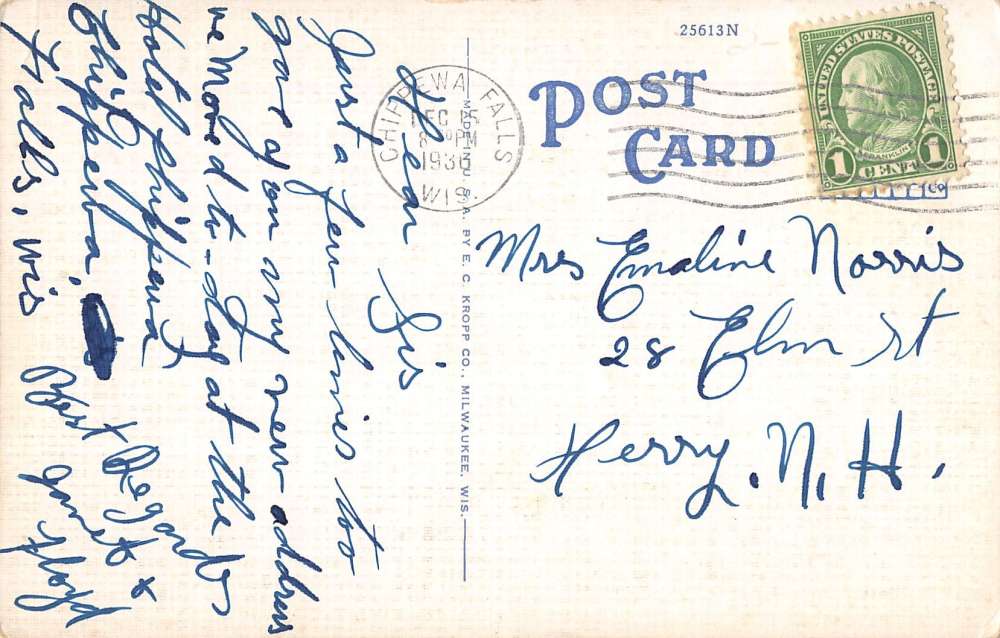 25613N
POST
CARD
UNITED STATES POSTAGE
FRANKLIN
1 CENT 1
CHIPPEWA FALLS
DEC 15
8 PM
1936
WIS.
MADE IN U. S. A. BY E. C. KROPP CO., MILWAUKEE, WIS.
Dear Sis
Just a few lines to
give you my new address
we Moved to-day at the
Hotel Chippewa,
Chippewa,
Falls, Wis
Best Regards
Janet &
Floyd
Mrs Emaline Norris
28 Elm St
Derry. N. H.
Co